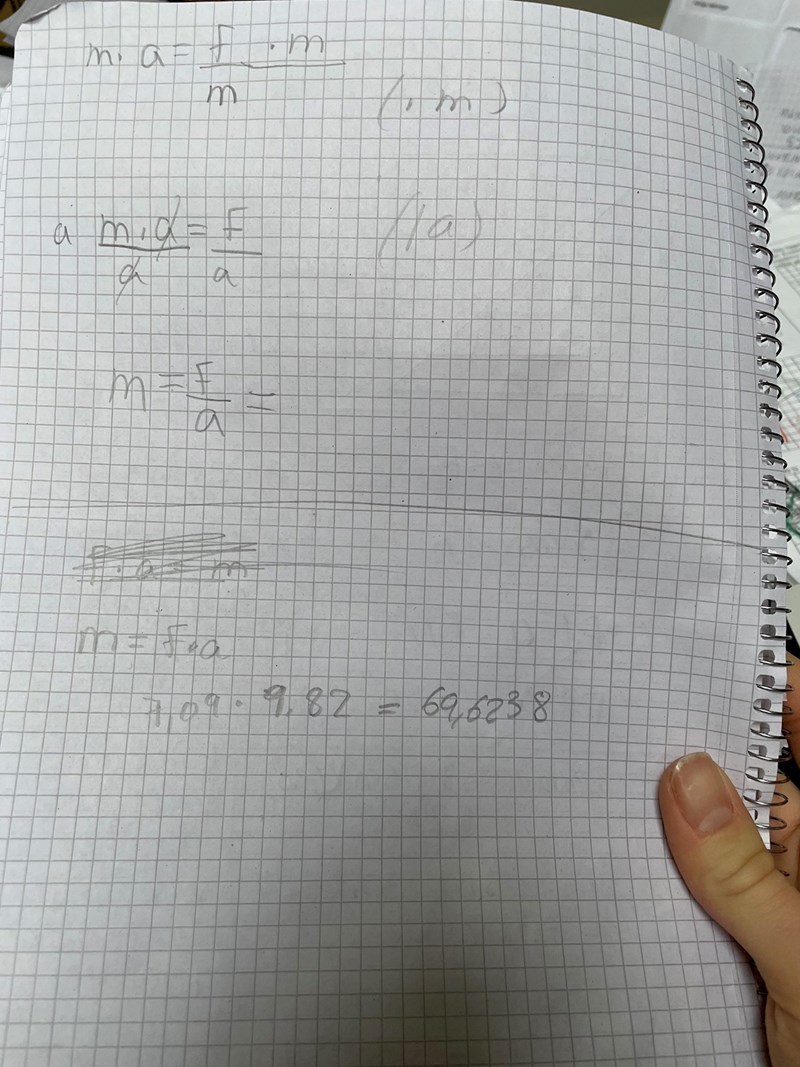 m · a = F · m / m (· m)
a m · a / a = F / a (/ a)
m = F / a =
F · a = m
m = F · a
7,09 · 9.82 = 69,6238